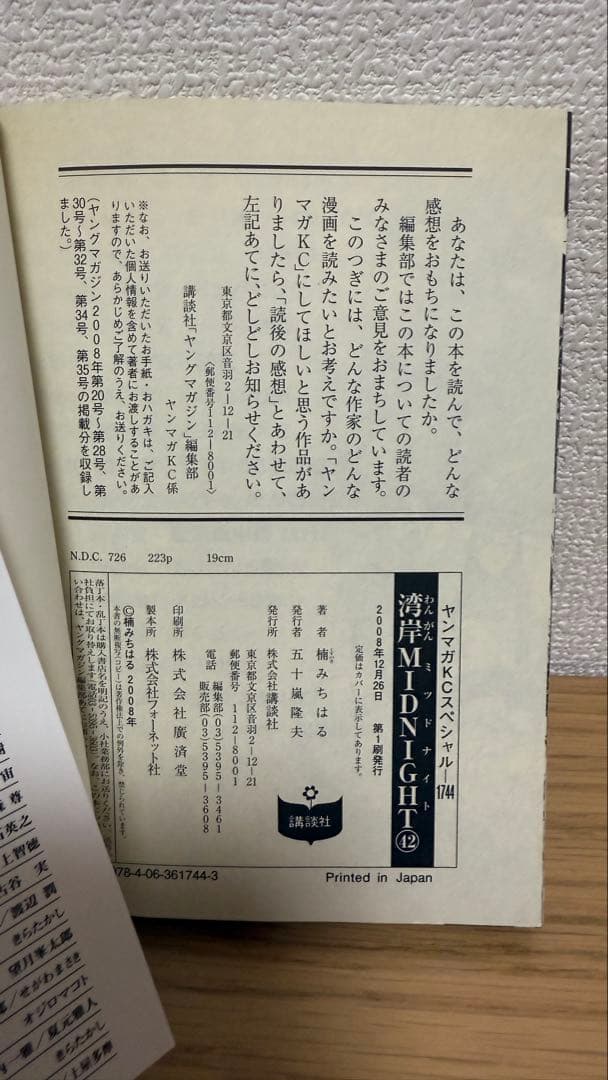 あなたは、この本を読んで、どんな
感想をおもちになりましたか。
編集部ではこの本についての読者の
みなさまのご意見をおまちしています。
このつぎには、どんな作家のどんな
漫画を読みたいとお考えですか。「ヤン
マガKC」にしてほしいと思う作品があ
りましたら、「読後の感想」とあわせて、
左記あてに、どしどしお知らせください。
東京都文京区音羽2-12-21
〈郵便番号112-8001〉
講談社「ヤングマガジン」編集部
ヤンマガKC係
※なお、お送りいただいたお手紙・おハガキは、ご記入
いただいた個人情報を含めて著者にお渡しすることがあ
りますので、あらかじめご了解のうえ、お送りください。
(ヤングマガジン2008年第20号〜第28号、第
30号〜第32号、第34号、第35号の掲載分を収録し
ました。)
N.D.C. 726 223p 19cm
ヤンマガKCスペシャル-1744
湾岸MIDNIGHT㊷
わんがん ミッドナイト
2008年12月26日 第1刷発行
定価はカバーに表示してあります。
著者 楠みちはる
発行者 五十嵐隆夫
発行所 株式会社講談社
東京都文京区音羽2-12-21
郵便番号 112-8001
電話 編集部(03)5395-3461
販売部(03)5395-3608
印刷所 株式会社廣済堂
製本所 株式会社フォーネット社
©楠みちはる 2008年
本書の無断複写(コピー)は著作権法上での例外を除き、禁じられています。
落丁本・乱丁本は購入書店名を明記のうえ、小社業務部にお送りください。
社負担にてお取り替えします
い合わせは、ヤングマガジン編集部あてに
講談社
78-4-06-361744-3
Printed in Japan
宙
尊
英之
上智徳
古谷 実
/渡辺 潤
きらたかし
望月峯太郎
/せがわまさき
オジロマコト
一雅/夏元雅人
きらたかし
/土屋多摩